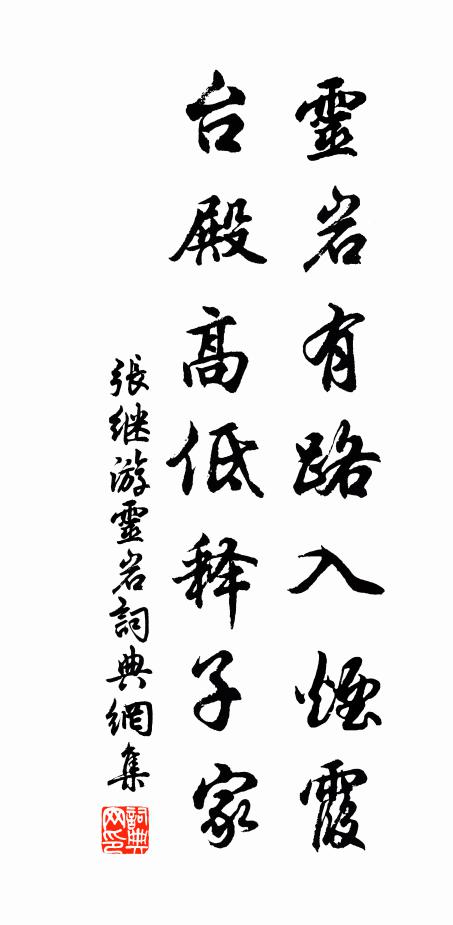 靈岩有路入煙霞
台殿高低释子家
張继游靈岩詞典網集
詞典网印